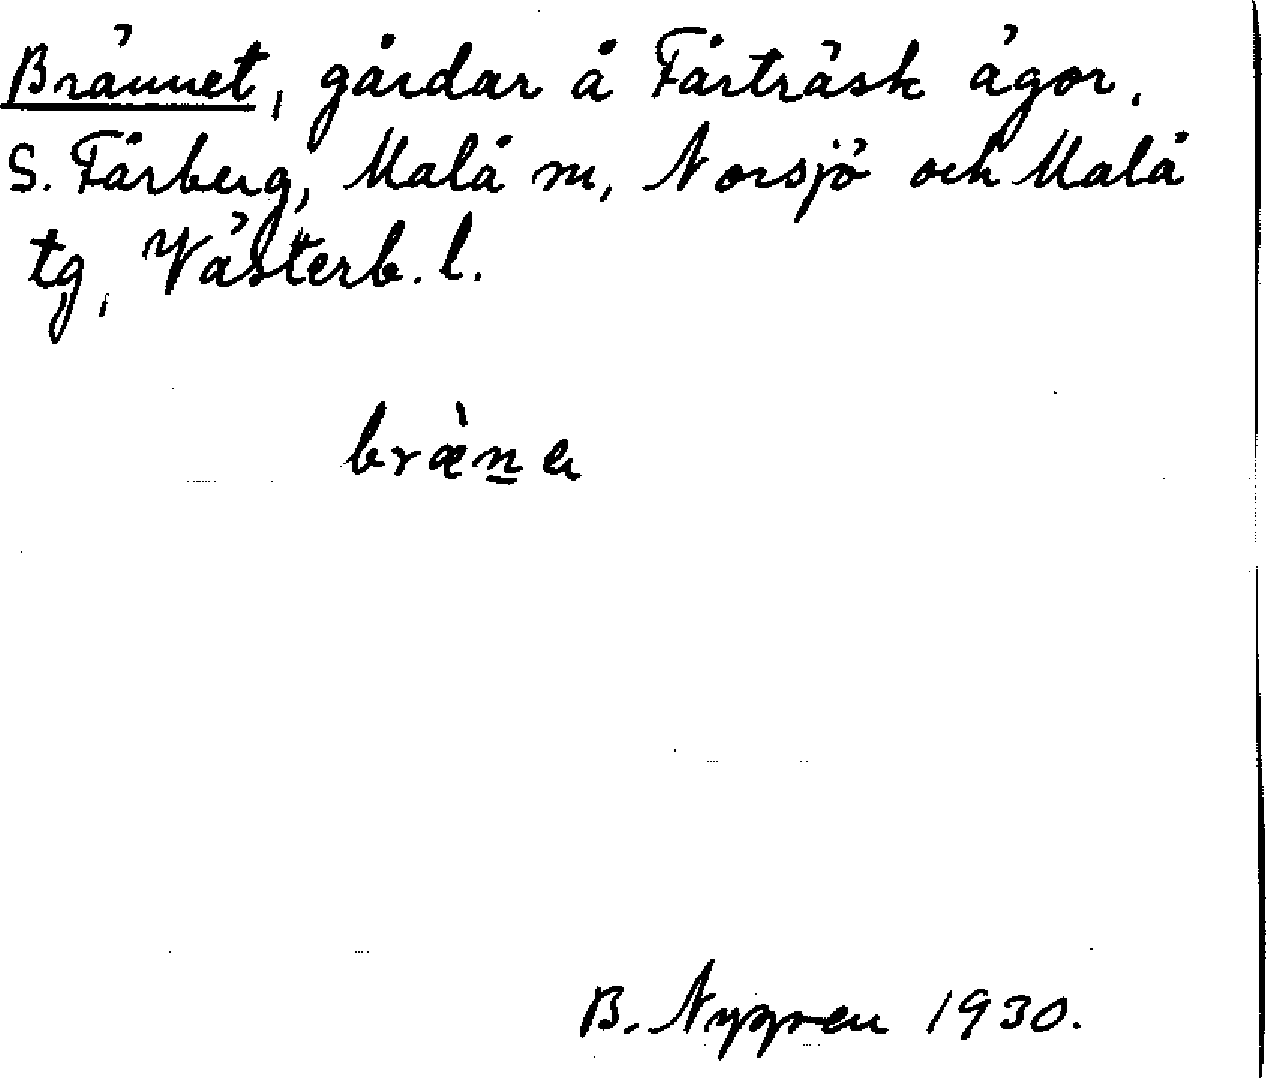 Brännet, gårdar å Fårträsk ägor,
S. Fårberg, Malå sn, Norsjö och Malå
tg, Västerb. l.
bræ̀n̲a
B. Nygren 1930.